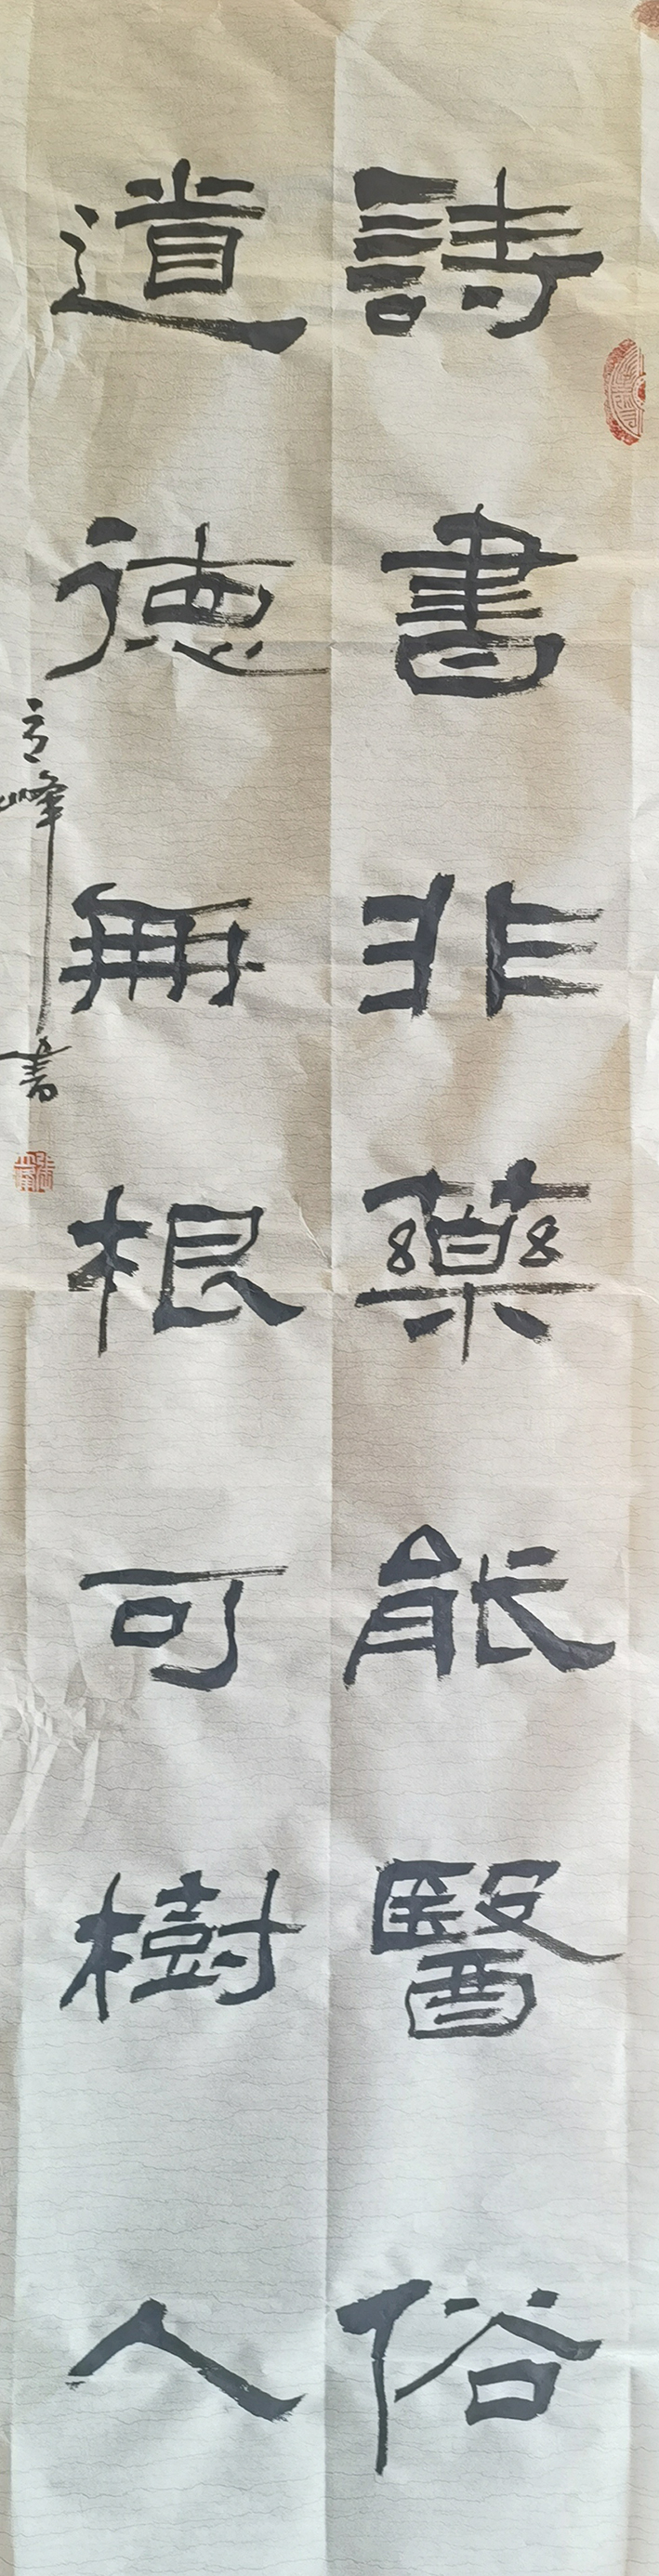 詩書非藥能醫俗
道德無根可樹人
立峰書